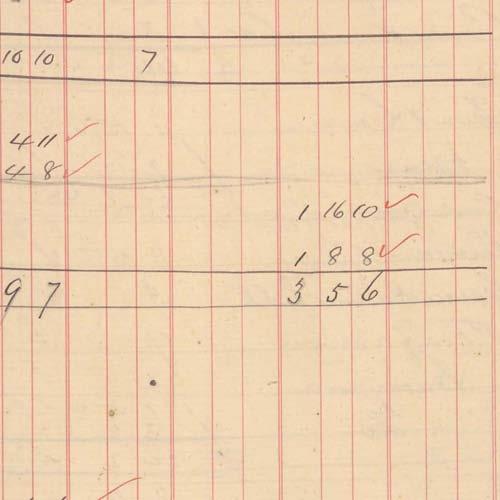 10 10 7
4 11
4 8
1 16 10
1 8 8
9 7 3 5 6